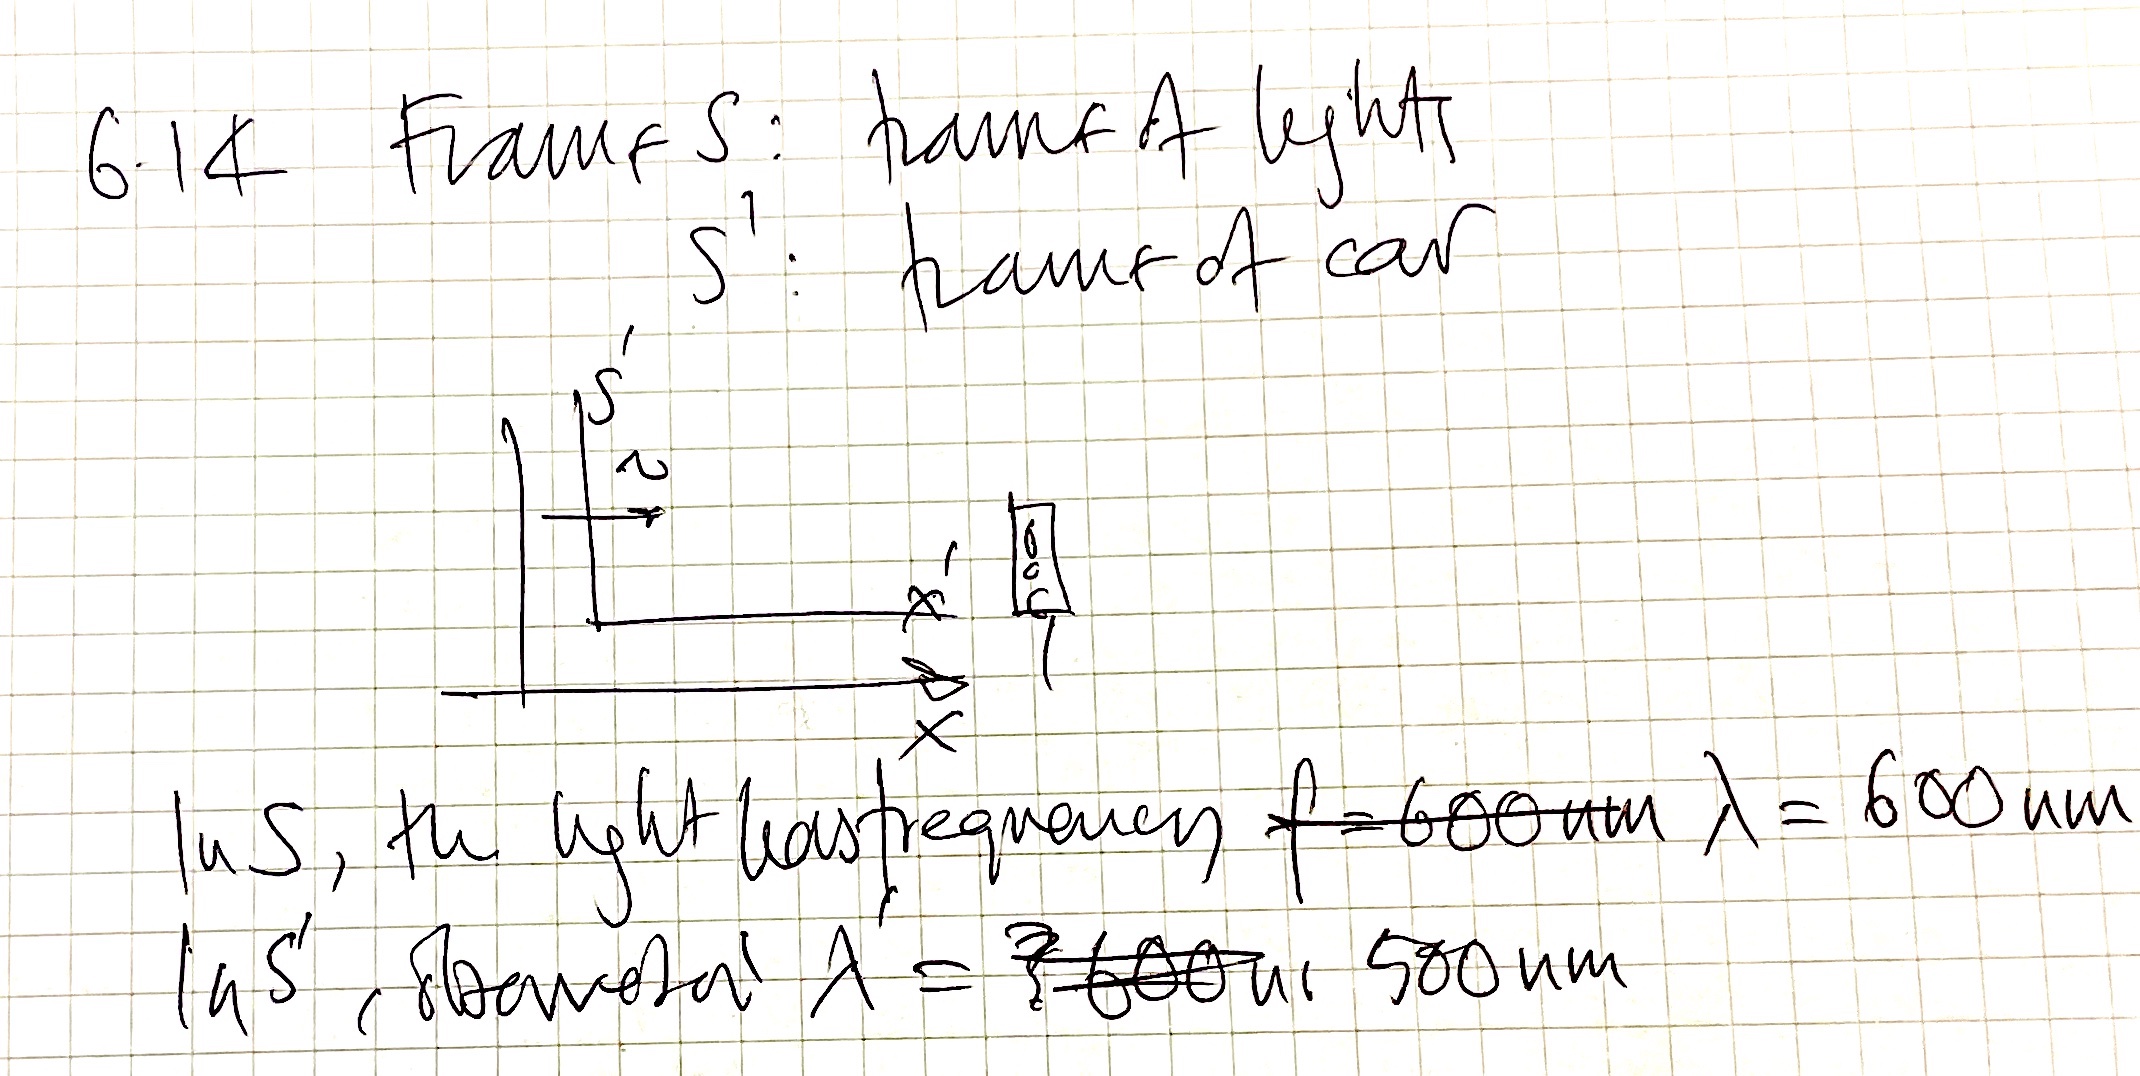 6.14 Frame S: frame of lights
S': frame of car
S'
v
x'
x
In S, the light has frequency f = 600 nm λ = 600 nm
In S', λ = 600 n 500 nm